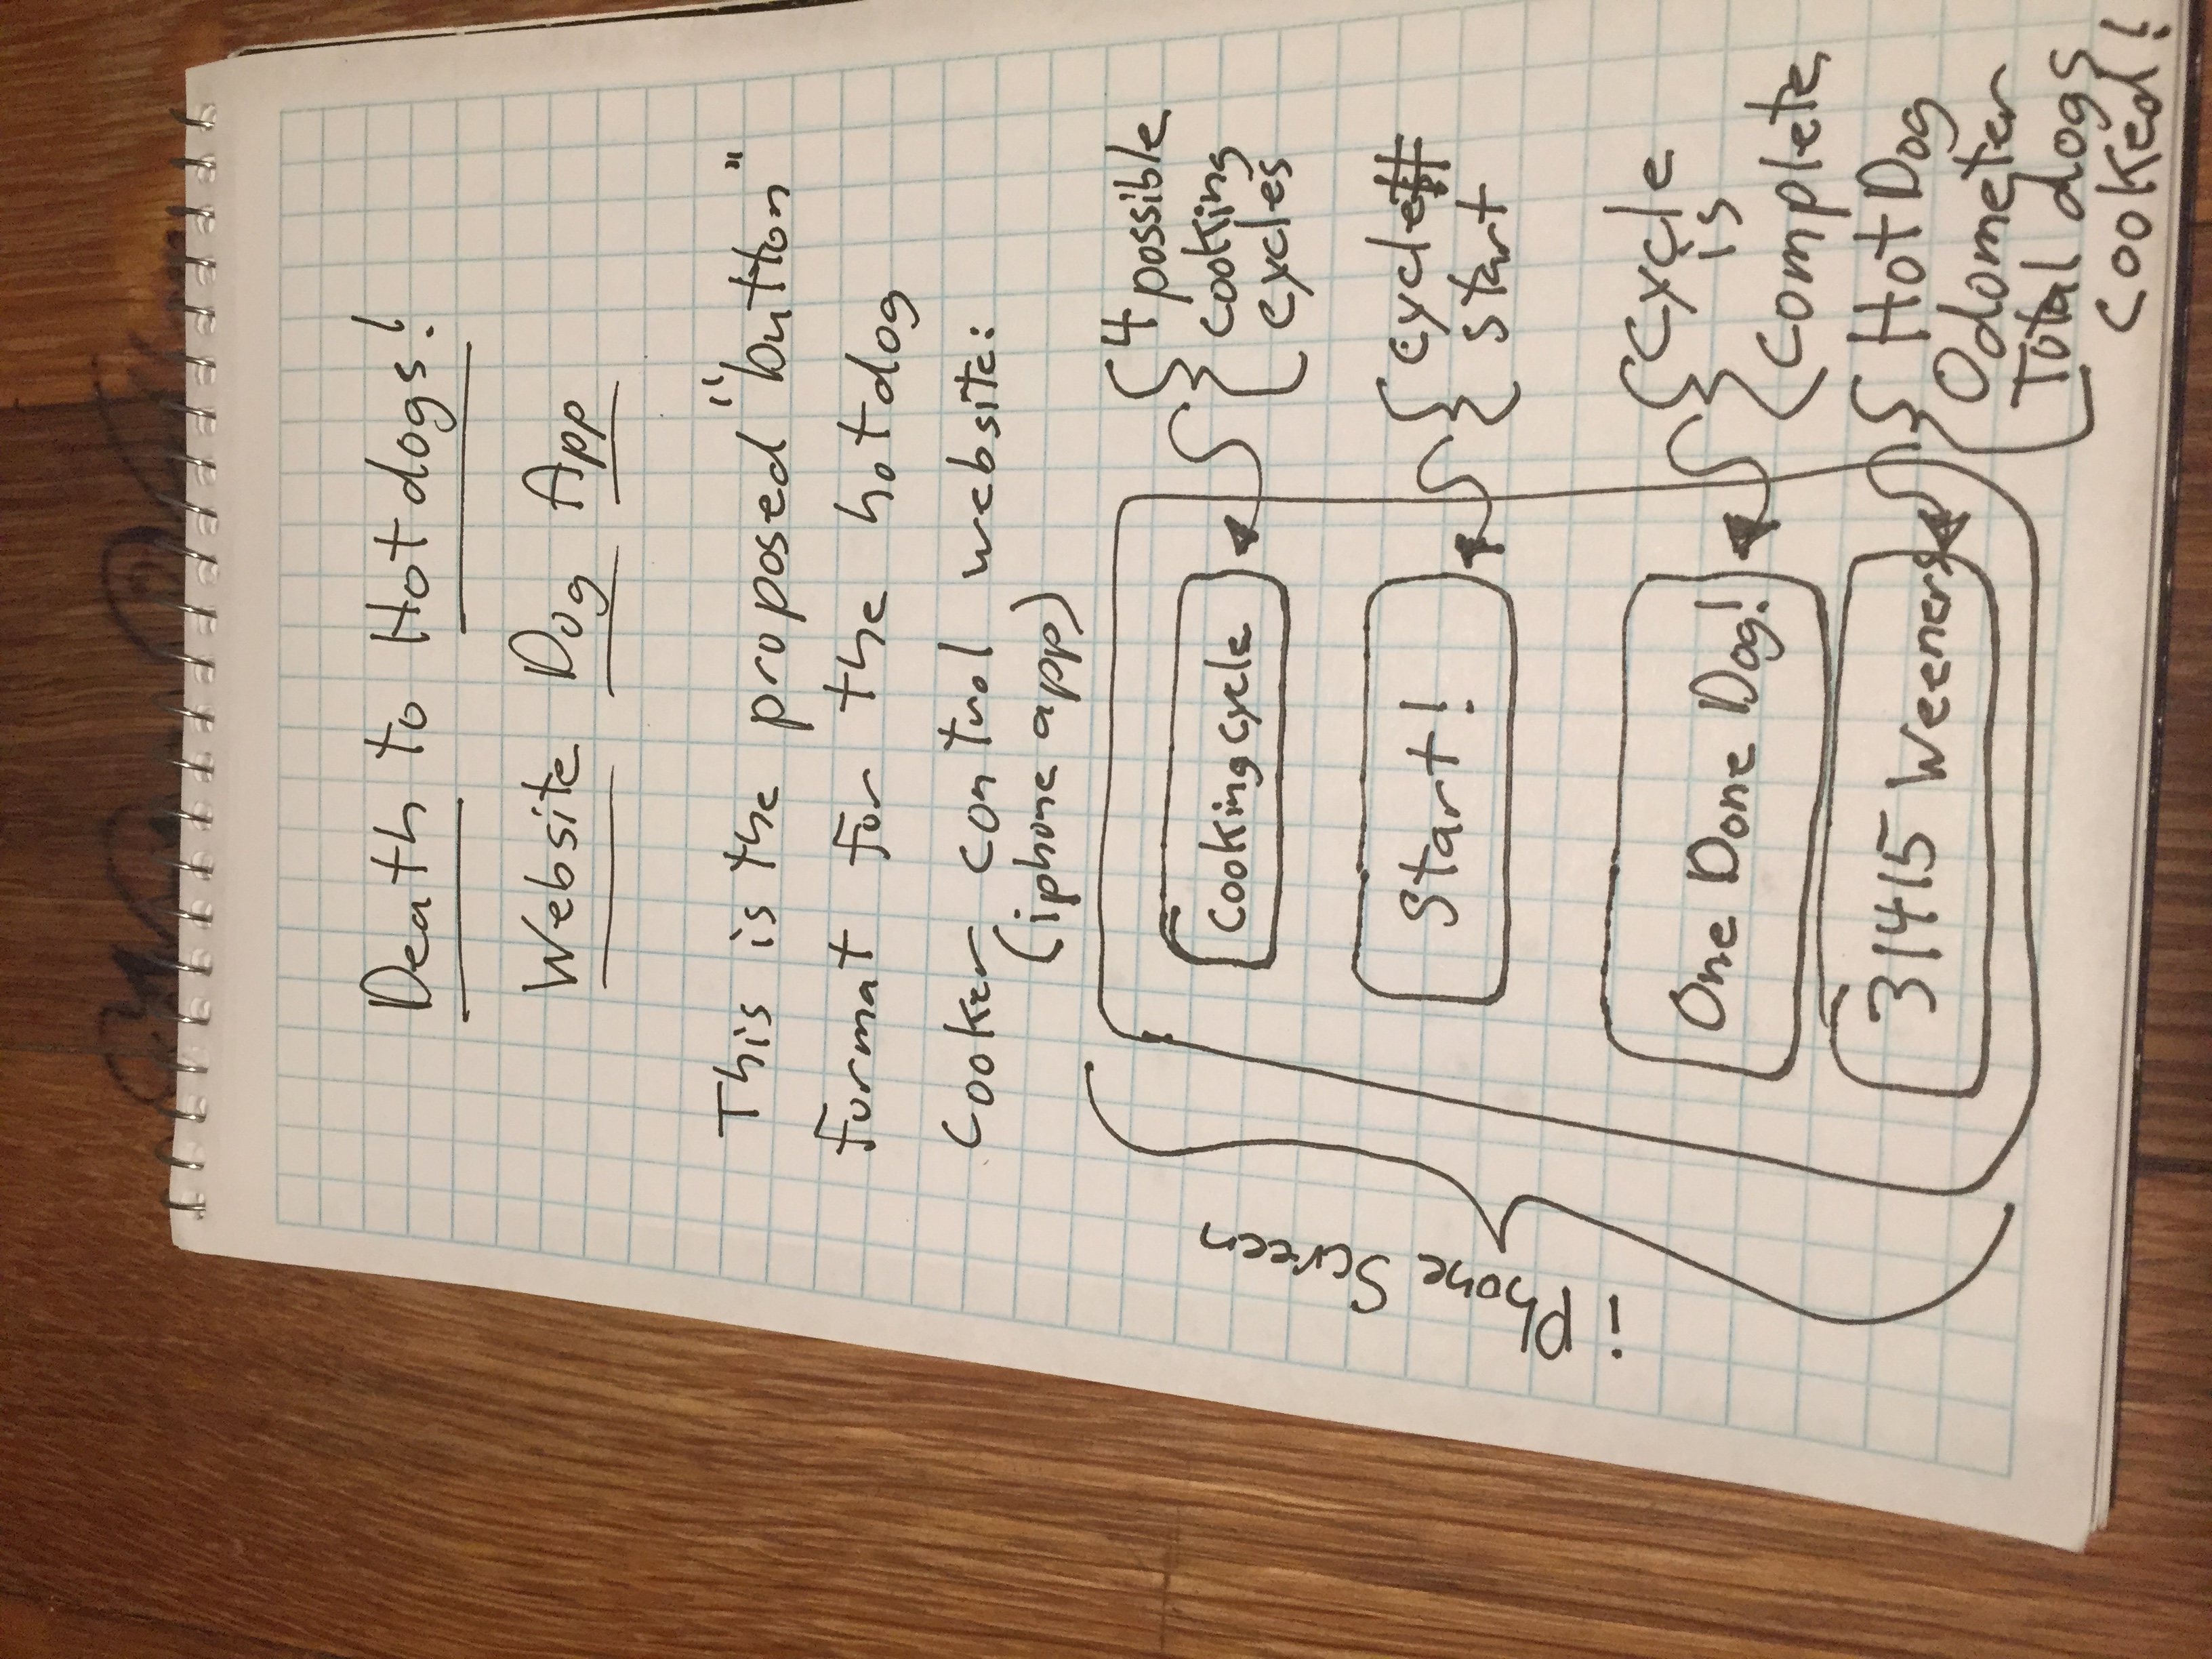 Death to Hotdogs!
Website Dog App
This is the proposed "button"
format for the hotdog
cooker control website:
(iphone app)
iPhone Screen
Cooking cycle
4 possible
cooking
cycles
Start!
cycle#
start
One Done Dog!
Cycle
is
complete
31415 Weeners
Hot Dog
Odometer
Total dogs
cooked!